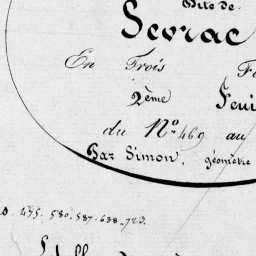 dite de
Sevrac
En Trois
2ème Feui
du N.º 469 au
Par Simon, géomètre
475. 580. 587. 638. 723.